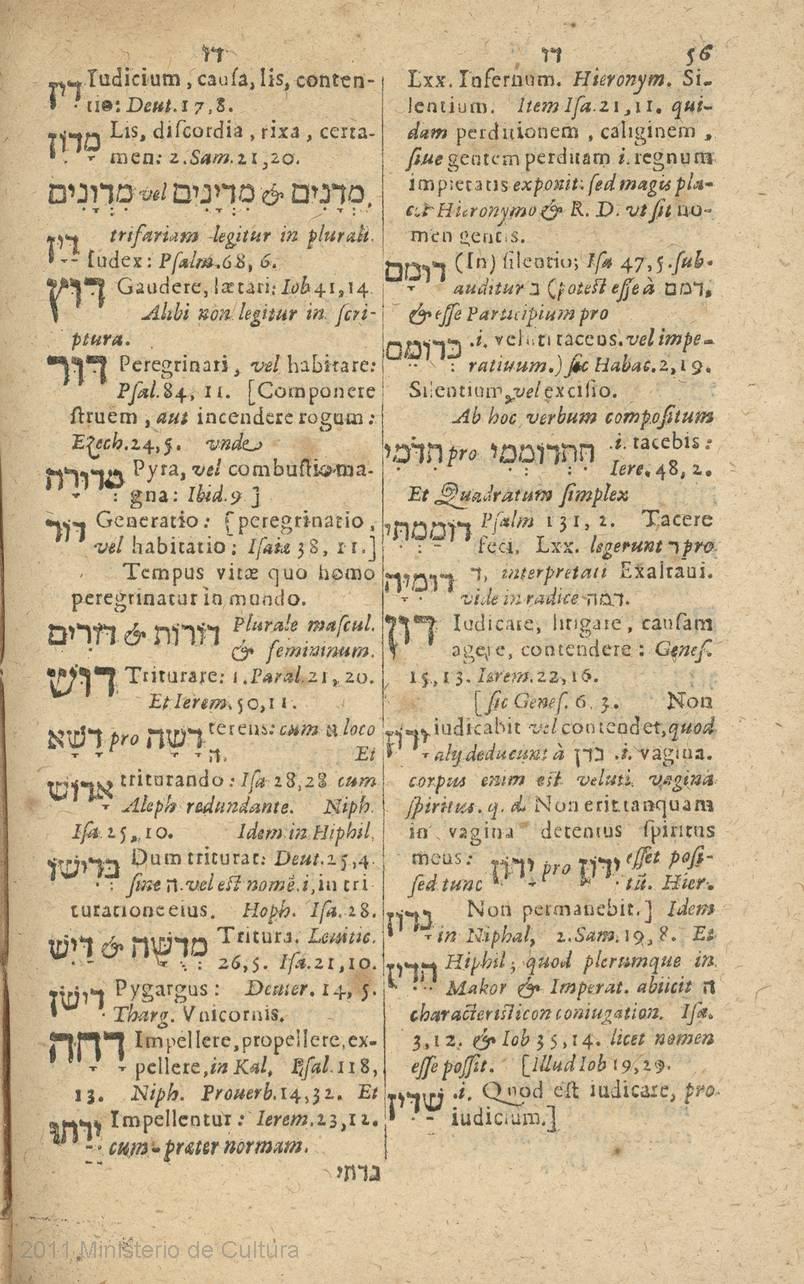 דו
דו 56
Lxx. Infernum. Hieronym. Si-
lentium. Item Iſa.21,11. qui-
dam perditionem, caliginem,
ſiue gentem perditam i. regnum
impietatis exponit: ſed magis pla-
cet Hieronymo & R. D. vt ſit no-
men gentis.
דומם (In) ſilentio; Iſa 47,5. ſub-
auditur ב (poteſt eſſe à דמם,
& eſſe Participium pro
כדומם .i. veluti tacens. vel impe-
ratiuum.) ſic Habac.2,19.
Silentium, vel exciſio.
Ab hoc verbum compoſitum
תדמי pro תתדוממי .i. tacebis:
Iere. 48, 2.
Et Quadratum ſimplex
דוממתי Pſalm 131, 2. Tacere
feci. Lxx. legerunt ר pro
דומיה ד, interpretati Exaltaui.
vide in radice דמה.
דון Iudicare, litigare, cauſam
agere, contendere: Geneſ.
15,13. Ierem.22,16.
[ſic Geneſ. 6. 3. Non
ידון iudicabit vel contendet, quod
alij deducunt à נדן .i. vagina.
corpus enim eſt veluti vagina
ſpiritus. q. d. Non erit tanquam
in vagina detentus ſpiritus
meus: ידון pro ידון eſſet poſi-
ſed tunc tũ. Hier.
נדון Non permanebit.] Idem
in Niphal, 2.Sam.19,8. Et
הדין Hiphil; quod plerumque in
Makor & Imperat. abiicit ה
characteriſticon coniugation. Iſa.
3,12. & Iob 35,14. licet nomen
eſſe poſſit. [Illud Iob 19,29.
שדין .i. Quod eſt iudicare, pro
iudicium.]
דין Iudicium, cauſa, lis, conten-
tio: Deut.17,8.
מדון Lis, diſcordia, rixa, certa-
men: 2.Sam.21,20.
מדנים & מדינים vel מדונים
trifariam legitur in plurali.
דין Iudex: Pſalm.68, 6.
דוץ Gaudere, lætari: Iob 41,14
Alibi non legitur in ſcri-
ptura.
דור Peregrinari, vel habitare:
Pſal.84, 11. [Componere
ſtruem, aut incendere rogum:
Ezech.24,5. vnde
מדורה Pyra, vel combuſtio ma-
gna: Ibid.9 ]
דור Generatio: [peregrinatio,
vel habitatio: Iſaiæ 38, 11.]
Tempus vitæ quo homo
peregrinatur in mundo.
דורים & דורות Plurale maſcul.
& femininum.
דוש Triturare: 1.Paral.21,20.
Et Ierem.50,11.
דשא pro דשה terens: cum א loco
ה. Et
אדוש triturando: Iſa 28,28 cum
Aleph redundante. Niph.
Iſa.25,10. Idem in Hiphil.
בדישו Dum triturat: Deut.25,4.
ſine ה. vel eſt nomẽ. i, in tri
turatione eius. Hoph. Iſa.28.
דיש & מדשה Tritura. Leuitic.
26,5. Iſa.21,10.
דישן Pygargus: Deuter. 14, 5.
Tharg. Vnicornis.
דחה Impellere, propellere, ex-
pellere, in Kal, Pſal.118,
13. Niph. Prouerb.14,32. Et
ידחו Impellentur: Ierem.23,12.
cum - præter normam.
נדחי
2011 Ministerio de Cultura